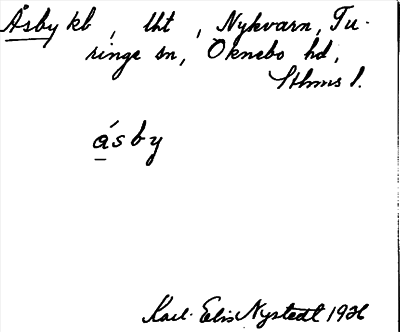 Åsby kb, lht, Nykvarn, Tu-
ringe sn, Öknebo hd,
Sthms l.
ásby
Karl-Elis Nystedt 1936